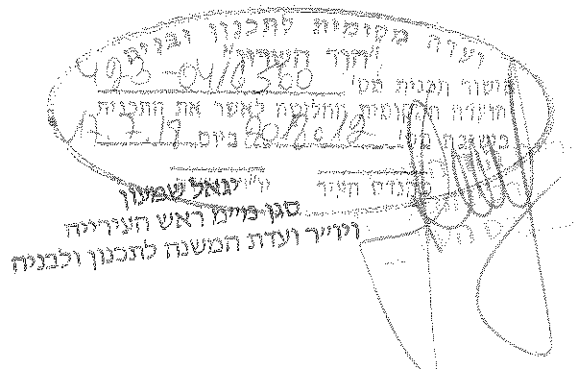 ועדה מקומית לתכנון ובניה
"הוד השרון"
אישור תכנית מס' 493-0410360
הועדה המקומית החליטה לאשר את התכנית
בישיבה מס' 2018012 ביום 17.7.19
מהנדס העיר
יגאל שמעון
סגן מ״מ ראש העירייה
ויו״ר ועדת המשנה לתכנון ולבניה